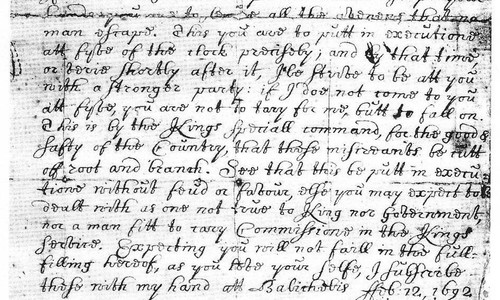 you are to secure all the avenues that no
man escape. This you are to putt in executione
att fyve of the clock precisely; and by that time,
or verie shortly after it, I'le stryve to be att you
with a stronger party: if I doe not come to you
att fyve, you are not to tary for me, butt to fall on.
This is by the Kings speciall command, for the good &
safty of the Country, that these miscreants be cutt
off root and branch. See that this be putt in execu
tione without feud or favour, else you may expect to be
dealt with as one not true to King nor Government,
nor a man fitt to cary Commissione in the Kings
service. Expecting you will not faill in the full-
filling hereof, as you love your selfe, I subscribe
these with my hand att Balicholis Feb. 12, 1692